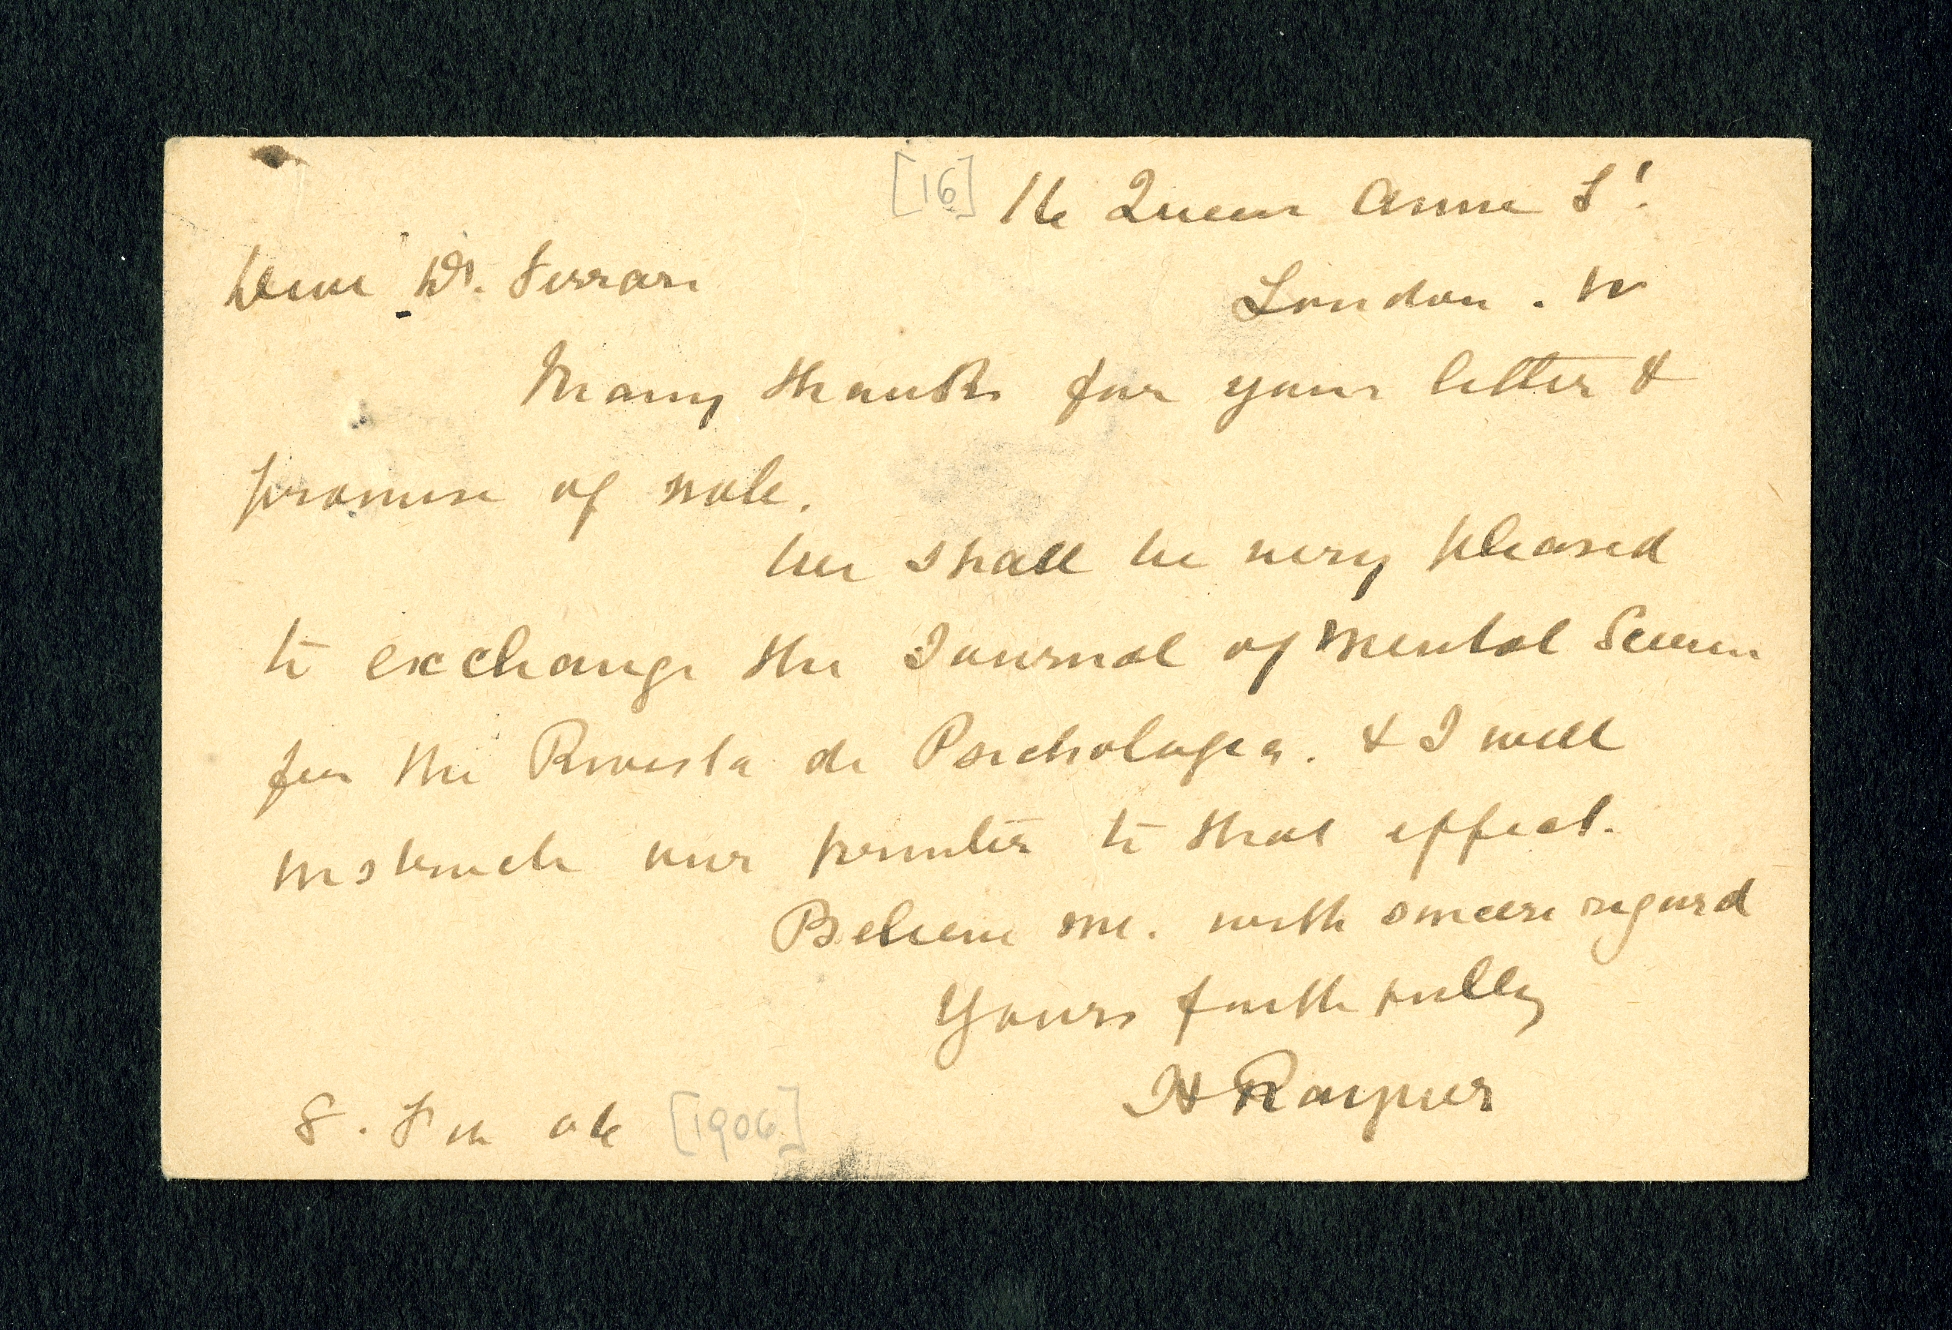 [16] 16 Queen Anne St.
Dear Dr. Ferrari
London. W
Many thanks for your letter &
promise of note.
We shall be very pleased
to exchange the Journal of Mental Science
for the Rivista di Psichologia. & I will
instruct our printer to that effect.
Believe me. with sincere regard
Yours faithfully
H Rayner
8. Fe 06 [1906]